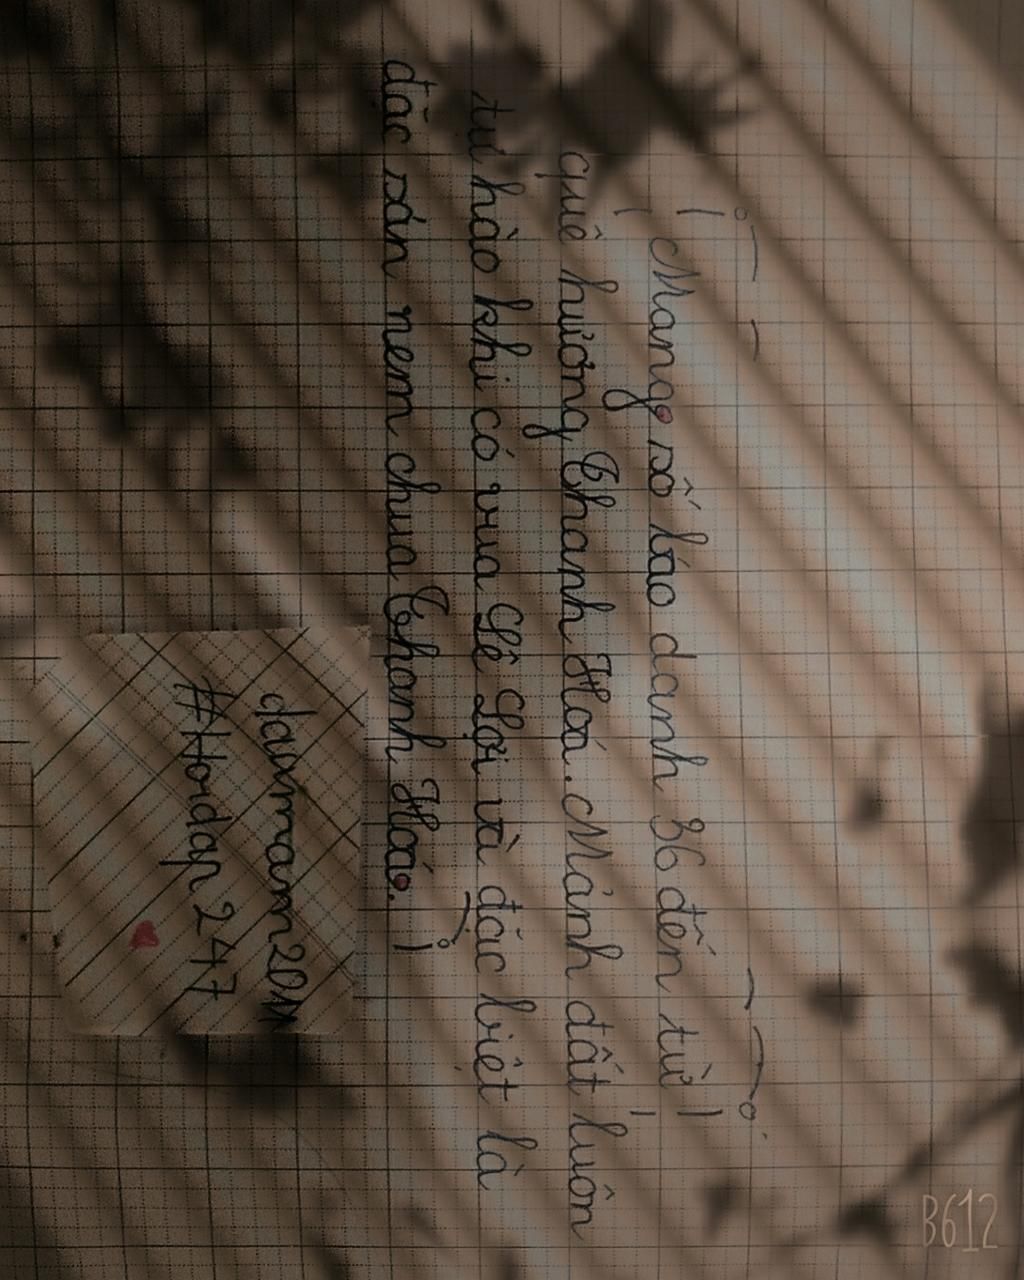 Mang số báo danh 36 đến từ
quê hương Thanh Hoá. Mảnh đất luôn
tự hào khi có vua Lê Lợi và đặc biệt là
đặc sản nem chua Thanh Hoá.
#Hoidap247
B612